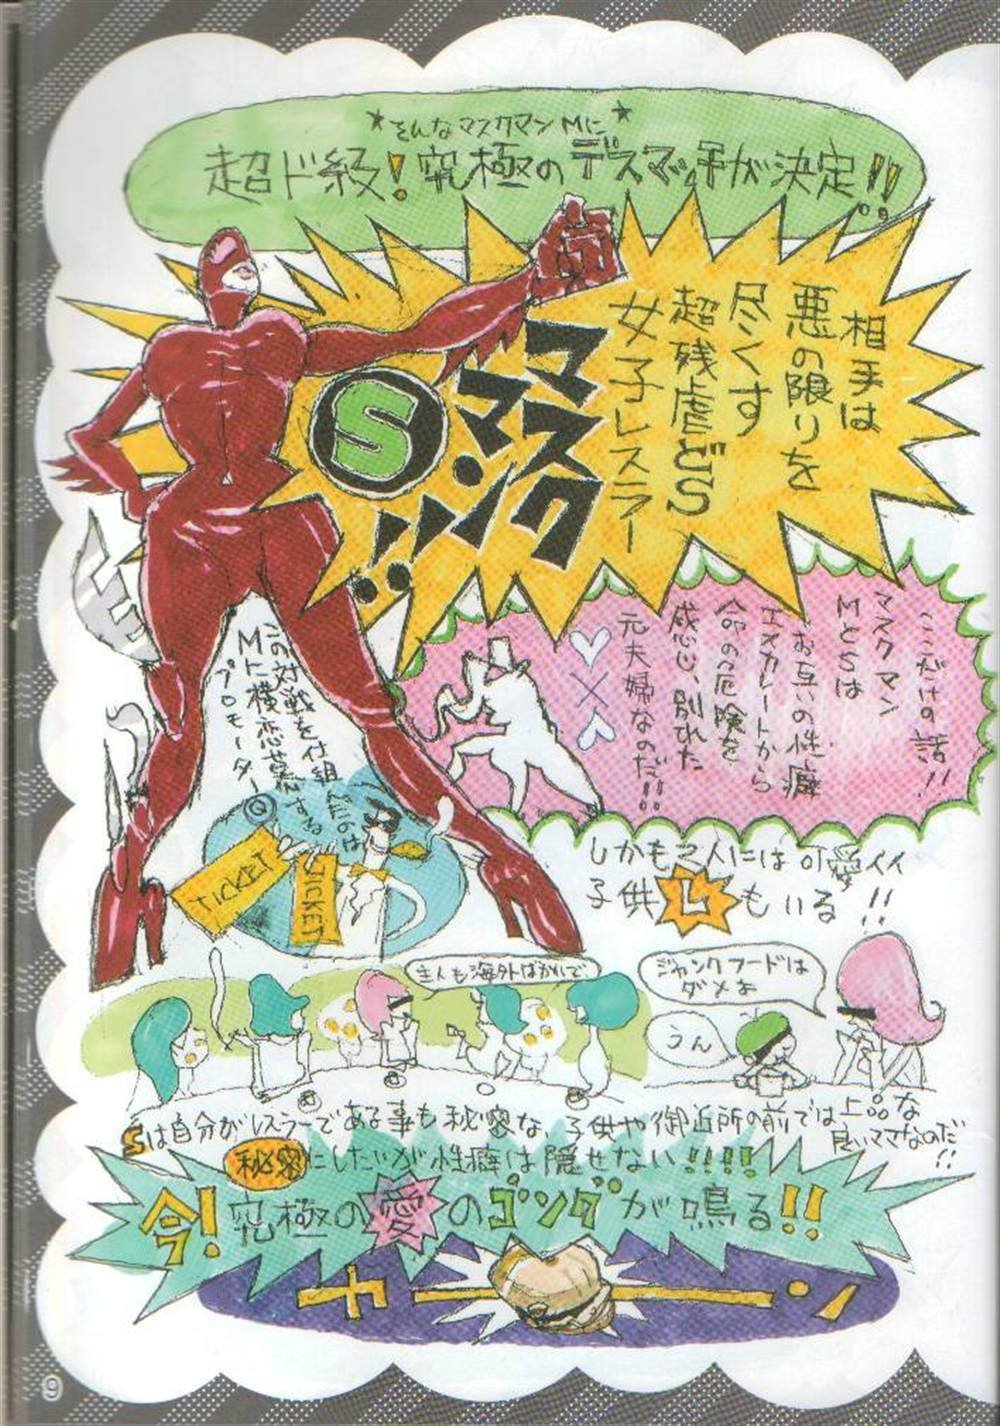 ★そんなマスクマンMに★
超ド級!究極のデスマッチが決定!!
相手は
悪の限りを
尽くす
超残虐どS
女子レスラー
マスク
マン
S
!!
ここだけの話!!
マスクマン
MとSは
お互いの性癖
エスカレートから
命の危険を
感じ、別れた
元夫婦なのだ!!
この対戦を仕組んだのは
Mに横恋慕する
プロモーターQ
TICKET
TICKET
しかも二人には可愛イイ
子供Lもいる!!
主人も海外ばかりで
ジャンクフードは
ダメよ
うん
Sは自分がレスラーである事も秘密な、子供や御近所の前では上品な
良いママなのだ!!
秘密にしたいが性癖は隠せない!!!!
今!究極の愛のゴングが鳴る!!
チーン
9